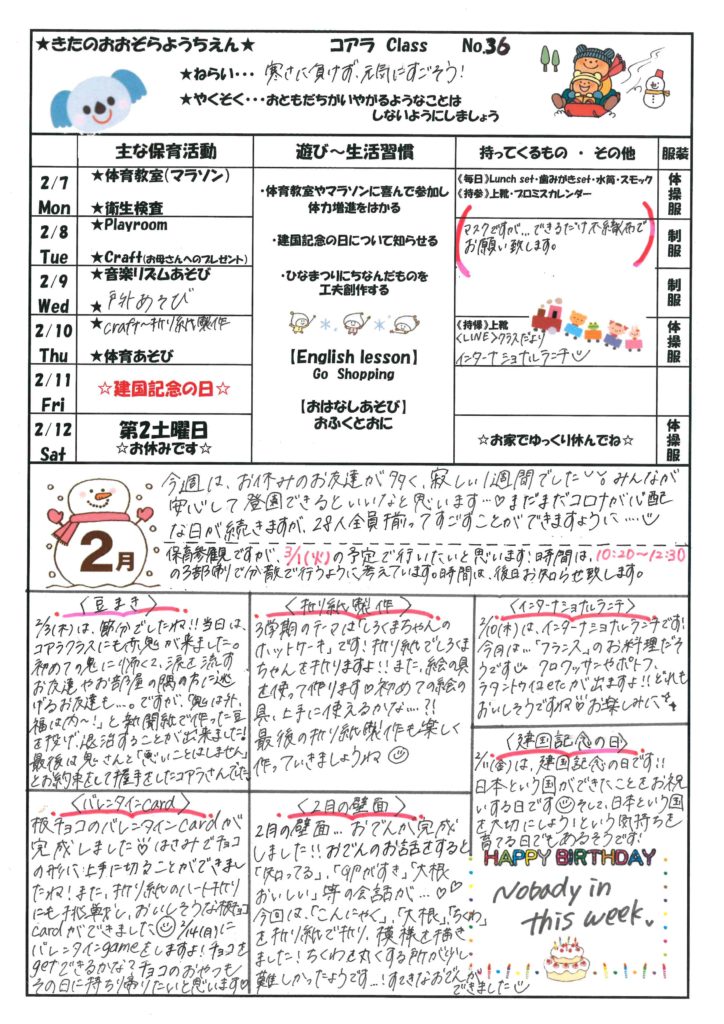 ★きたのおおぞらようちえん★
コアラ Class No.36
★ねらい・・・寒さに負けず、元気にすごそう!
★やくそく・・・おともだちがいやがるようなことは
しないようにしましょう
主な保育活動
遊び〜生活習慣
持ってくるもの ・ その他
服装
2/7
Mon
★体育教室(マラソン)
★衛生検査
2/8
Tue
★Playroom
★Craft(お母さんへのプレゼント)
2/9
Wed
★音楽リズムあそび
★戸外あそび
2/10
Thu
★craft〜折り紙製作
★体育あそび
2/11
Fri
☆建国記念の日☆
2/12
Sat
第2土曜日
☆お休みです☆
・体育教室やマラソンに喜んで参加し
体力増進をはかる
・建国記念の日について知らせる
・ひなまつりにちなんだものを
工夫創作する
【English lesson】
Go Shopping
【おはなしあそび】
おふくとおに
《毎日》Lunch set・歯みがきset・水筒・スモック
《持参》上靴・プロミスカレンダー
マスクですが…できるだけ不織布で
お願い致します。
《持帰》上靴
〈LINE〉クラスだより
インターナショナルランチ
☆お家でゆっくり休んでね☆
体操服
制服
制服
体操服
体操服
2月
今週は、お休みのお友達が多く、寂しい1週間でした。みんなが
安心して登園できるといいなと思います…♡まだまだコロナが心配
な日が続きますが、28人全員揃ってすごすことができますように……
保育参観ですが、3/1(火)の予定で行いたいと思います!時間は、10:20〜12:30
の3部制で分散で行うように考えています。時間は、後日お知らせ致します。
〈豆まき〉
2/3(木)は、節分でしたね!!当日は、
コアラクラスにも赤鬼が来ました。
初めての鬼に怖くて、涙を流す
お友達やお部屋の隅の方に逃
げるお友達も…。ですが、「鬼は外、
福は内〜!」と新聞紙で作った豆
を投げ、退治することが出来ました!
最後は鬼さんと「悪いことはしません」
とお約束をして握手をしたコアラさんでした。
〈折り紙製作〉
3学期のテーマは「しろくまちゃんの
ホットケーキ」です!折り紙でしろくま
ちゃんを折りますよ!!また、絵の具
を使って作ります♡初めての絵の
具、上手に使えるかな…?!
最後の折り紙製作も楽しく
作っていきましょうね☺
〈インターナショナルランチ〉
2/10(木)は、インターナショナルランチです!
今月は…「フランス」のお料理だそ
うです♡クロワッサンやポトフ、
ラタトゥイユetcが出ますよ!!どれも
おいしそうですね♡お楽しみに
〈建国記念の日〉
2/11(金)は、建国記念の日です!!
日本という国ができたことをお祝
いする日です☺そして、日本という国
を大切にしよう!という気持ちを
育てる日でもあるそうです!
〈バレンタインcard〉
板チョコのバレンタインcardが
完成しました♡はさみでチョコ
の形に上手に切ることができまし
たね!また、折り紙のハート折り
にも挑戦し、おいしそうな板チョコ
cardができました☺2/14(月)に
バレンタインgameをしますよ!チョコを
getできるかな?チョコのおやつも
その日に持ち帰りたいと思います♡
〈2月の壁面〉
2月の壁面…おでんが完成
しました!!おでんのお話をすると
「知ってる」、「卵がすき」、「大根
おいしい」等の会話が…♡♡
今回は、「こんにゃく」、「大根」、「ちくわ」
を折り紙で折り、模様を描き
ました!ちくわを丸くする所が少し
難しかったようです…!すてきなおでんが
できました
HAPPY BIRTHDAY
Nobody in
this week.